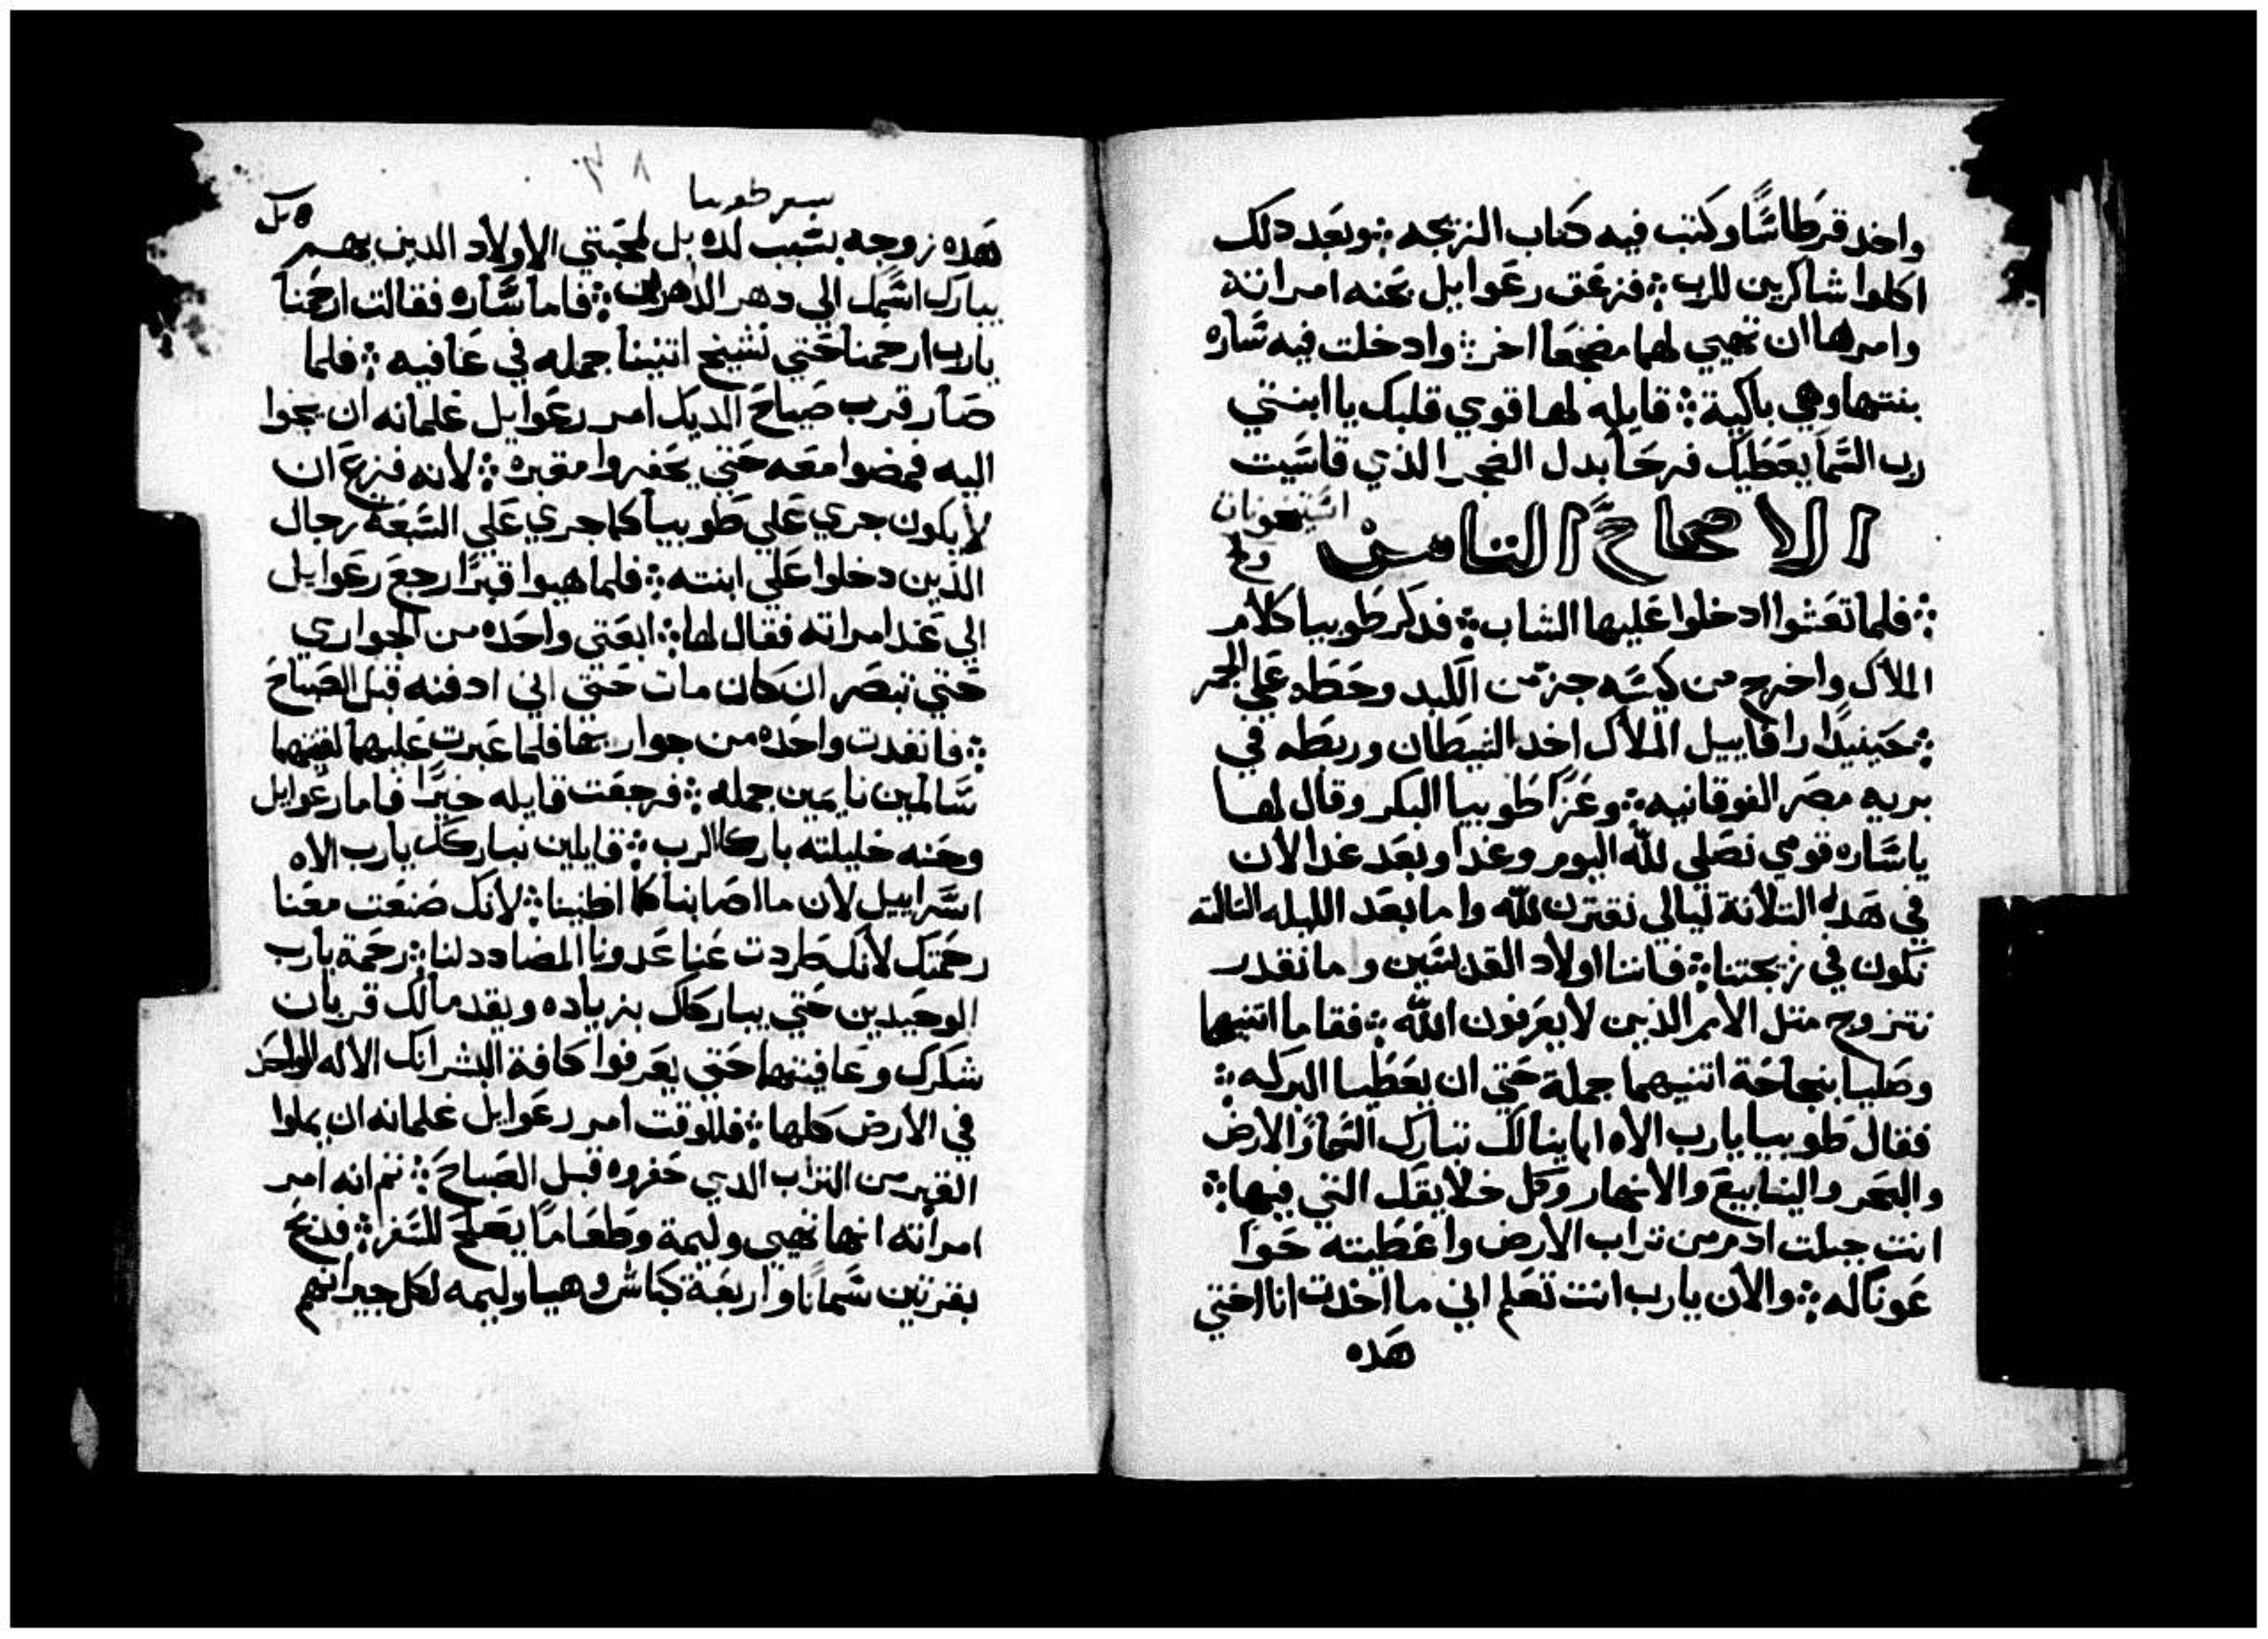 واخد قرطاسًا وكتب فيه كتاب الزيجه ⁘ وبعد دلك
اكلوا شاكرين للرب ⁘ فزعق رعوايل بحنه امراتة
وامرها ان تهيي لهما مضجعا اخر ⁘ وادخلت فيه ساره
بنتها وهي باكية ⁘ قايله لها قوي قلبك يا ابنتي
رب السما يعطيك فرحا بدل الضجر الذي قاسيت
الاصحاح الثامن
⁘ فلما تعشوا ادخلوا عليها الشاب ⁘ فدكر طوبيا كلام
الملاك واخرج من كيسه جز من الكبد وحطه علي الجمر
⁘ حينيدا رافاييل الملاك اخد الشيطان وربطه في
بريه مصر الفوقانيه ⁘ وعزا طوبيا البكر وقال لها
يا ساره قومي نصلي لله اليوم وغدا وبعد غد الان
في هده الثلاثة ليالي نقترن لله واما بعد الليله الثالثه
نكون في زيجتنا ⁘ فاننا اولاد القديسين وما نقدر
نتزوج متل الامم الذين لا يعرفون الله ⁘ فقاما اتنيهما
وصليا بنجاحة اتنيهما جملة حتي ان يعطيا البركه ⁘
فقال طوبيا يا رب الاه اباينا لك تبارك السما والارض
والبحر والينابيع والانهار وكل خلايقك التي فيها ⁘
انت جبلت ادم من تراب الارض واعطيته حوا
عونًا له ⁘ والان يا رب انت تعلم اني ما اخدت انا اختي
هده
سفر طوبيا
هده زوجه بسبب لده بل لمحبتي الاولاد الدين بهم
يبارك اسمك الي دهر الداهرين ⁘ فاما ساره فقالت ارحمنا
يا رب ارحمنا حتي نشيخ اتنينا جمله في عافيه ⁘ فلما
صار قرب صياح الديك امر رعوايل غلمانه ان يجوا
اليه فمضوا معه حتي يحفروا مقبره ⁘ لانه فزع ان
لا يكون جري علي طوبيا كما جري علي السبعة رجال
الذين دخلوا علي ابنته ⁘ فلما هيوا قبرًا رجع رعوايل
الي عند امراته فقال لها ⁘ ابعتي واحده من الجواري
حتي تبصر ان كان مات حتي اني ادفنه قبل الصباح
⁘ فانفدت واحده من جواريها فلما عبرت عليهما لقيتهما
سالمين نايمين جمله ⁘ فرجعت قايله خيرًا فاما رعوايل
وحنه خليلته باركا الرب ⁘ قايلين نباركك يا رب الاه
اسراييل لان ما اصابنا كما اظنينا ⁘ لانك صنعت معنا
رحمتك لانك طردت عنا عدونا المضادد لنا ⁘ رحمة يا رب
الوحيدين حتي يباركاك بزياده ويقدما لك قربان
شكرك وعافيتهما حتي يعرفوا كافة البشر انك الاله الواحد
في الارض كلها ⁘ فللوقت امر رعوايل غلمانه ان يملوا
القبر من التراب الدي حفروه قبل الصباح ⁘ تم انه امر
امراته انها تهيي وليمة وطعامًا يصلح للسفر ⁘ فدبح
بقرتين سمانًا واربعة كباش وهيا وليمه لكل جيرانهم